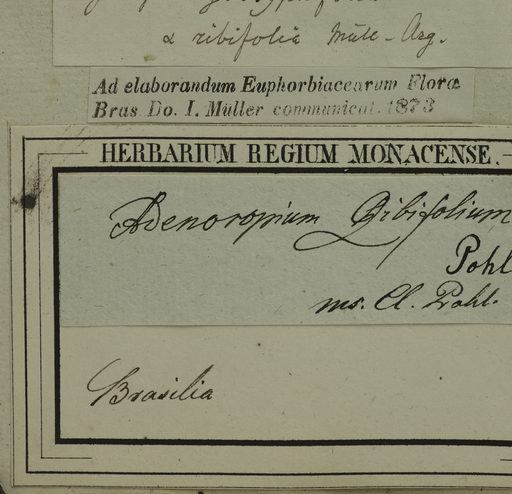 α ribifolia Müll-Arg.
Ad elaborandum Euphorbiacearum Floræ
Bras Do. I. Müller communicat. 1873
HERBARIUM REGIUM MONACENSE.
Adenoropium Ribifolium
Pohl
ms. Cl. Pohl.
Brasilia